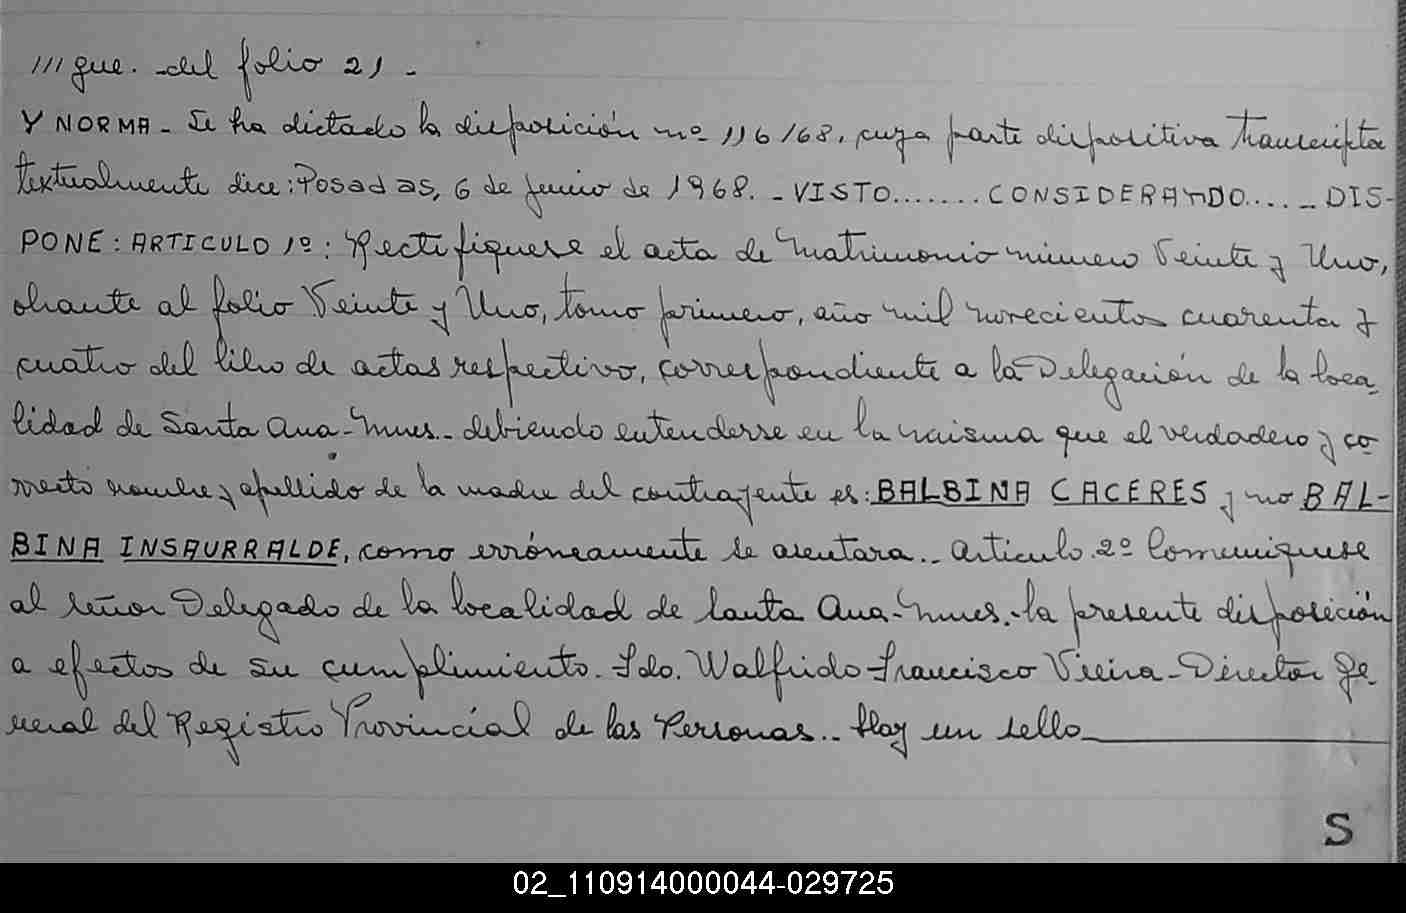 /// gue. del folio 21.-
Y NORMA - Se ha dictado la disposición nº 116/68, cuya parte dispositiva transcripta
textualmente dice: Posadas, 6 de junio de 1968. - VISTO....... CONSIDERANDO.... - DIS-
PONE: ARTICULO 1º: Rectifiquese el acta de Matrimonio número Veinte y Uno,
obrante al folio Veinte y Uno, tomo primero, año mil novecientos cuarenta y
cuatro del libro de actas respectivo, correspondiente a la Delegación de la loca-
lidad de Santa Ana - Mnes.- debiendo entenderse en la misma que el verdadero y co-
rrecto nombre y apellido de la madre del contrayente es: BALBINA CACERES y no BAL-
BINA INSAURRALDE, como erróneamente se asentara.- Articulo 2º Comuniquese
al señor Delegado de la localidad de Santa Ana - Mnes.- la presente disposición
a efectos de su cumplimiento. Fdo. Walfrido Francisco Vieira - Director Ge-
neral del Registro Provincial de las Personas.- Hay un sello
S
02_110914000044-029725